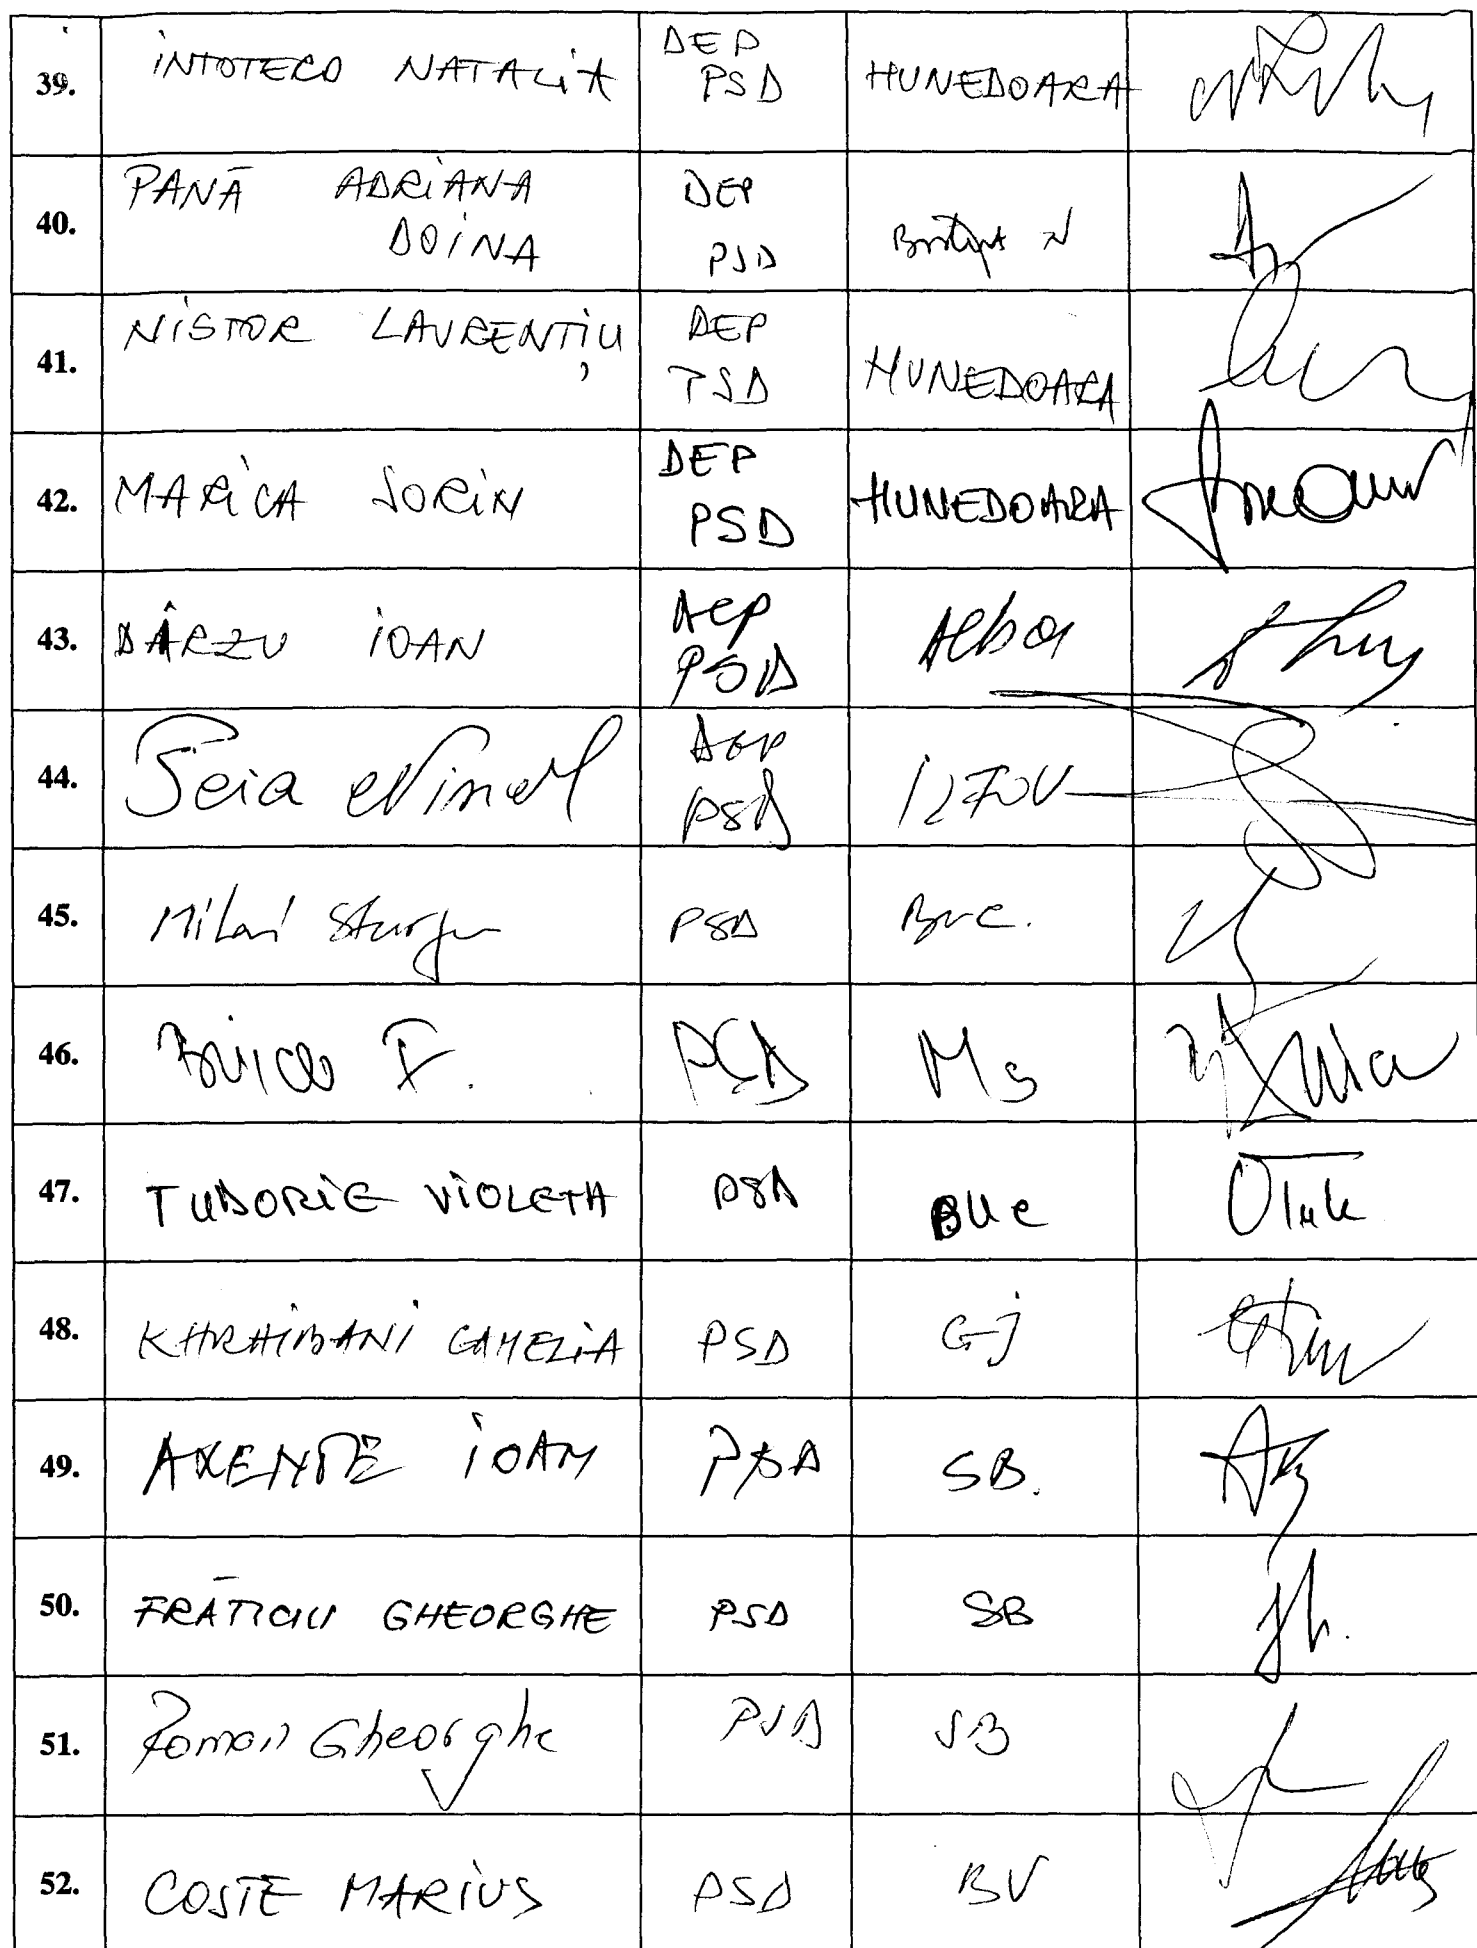 39. INTOTERO NATALIA DEP PSD HUNEDOARA
40. PANĂ ADRIANA DOINA DEP PSD N
41. NISTOR LAURENȚIU DEP PSD HUNEDOARA
42. MARICA SORIN DEP PSD HUNEDOARA
43. DÂRZU IOAN DEP PSD Alba
44. Peia Ninel DEP PSD ILFOV
45. Mihai Sturzu PSD Buc.
46. F. PSD MS
47. TUDORIE VIOLETA PSD BUC
48. KHRAIBANI CAMELIA PSD GJ
49. AXENTE IOAN PSD SB.
50. FRĂTICIU GHEORGHE PSD SB
51. Roman Gheorghe PSD SB
52. COSTE MARIUS PSD BV